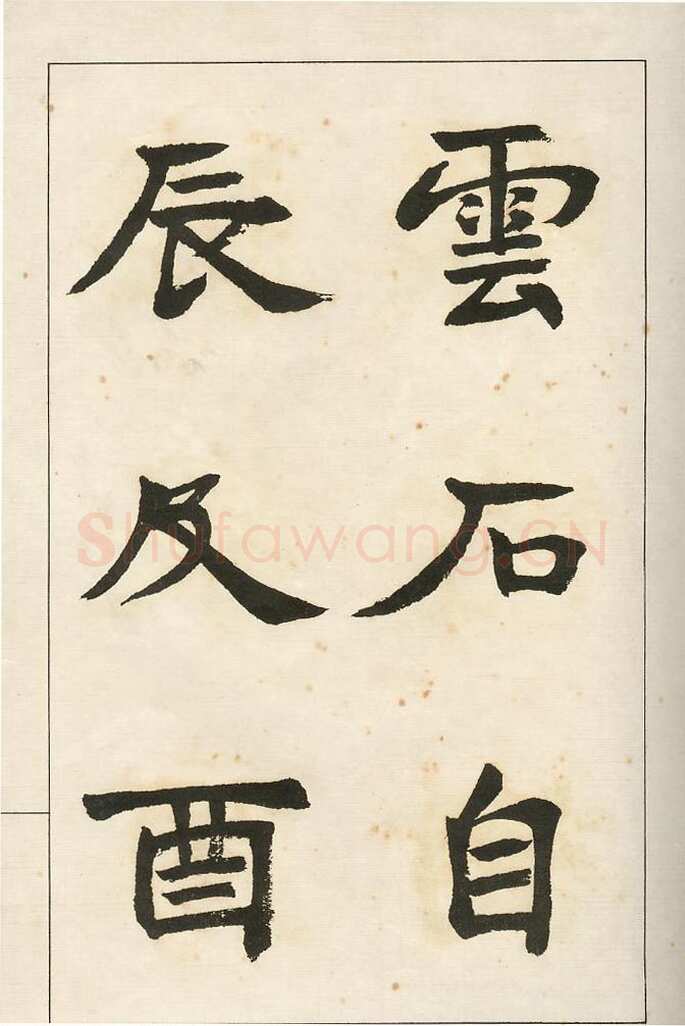 雲石自
辰及酉
Shufawang.CN